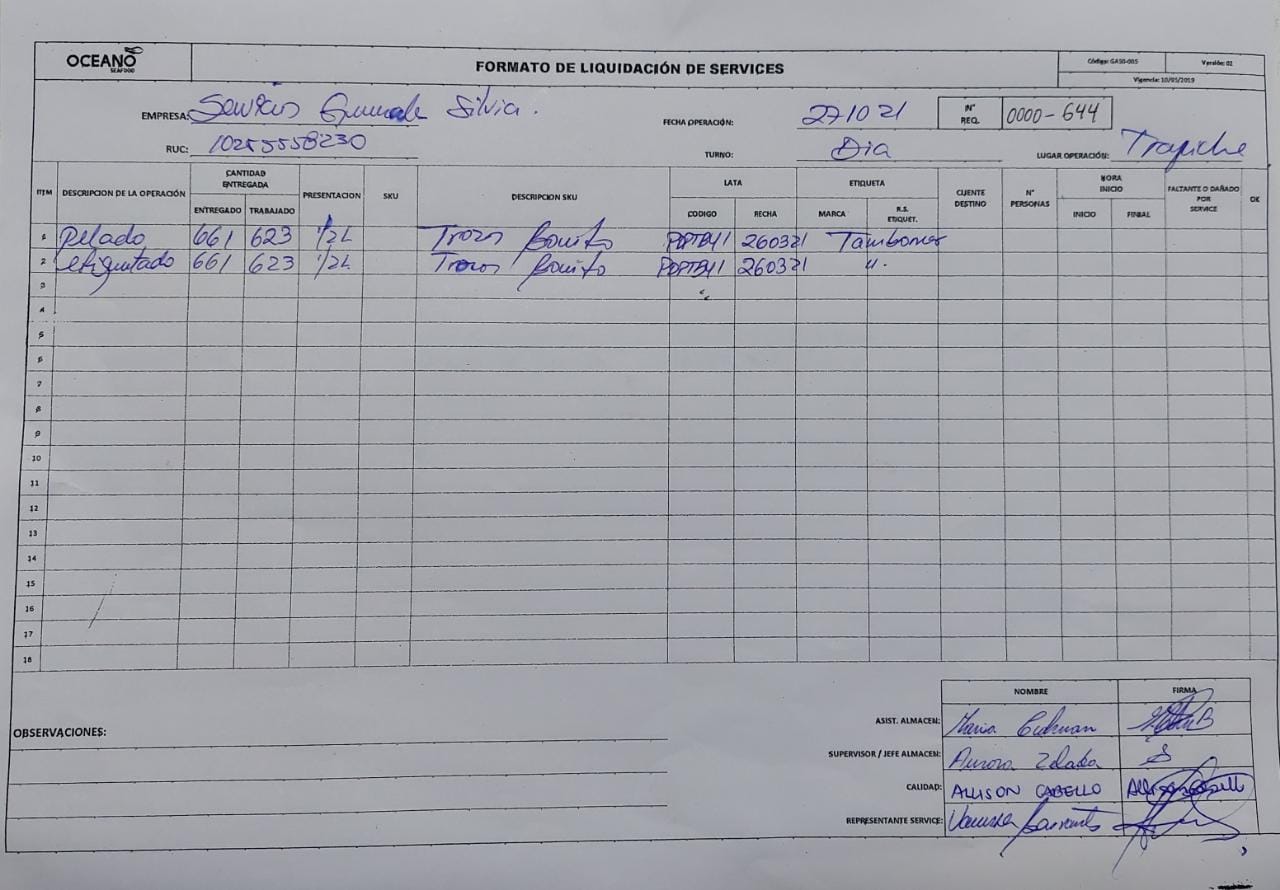 OCEANO
SEAFOOD
FORMATO DE LIQUIDACIÓN DE SERVICES
Código: GASG-005 Versión: 02
Vigencia: 10/05/2019
EMPRESA: Silvia.
FECHA OPERACIÓN: 271021
N° REQ. 0000-644
RUC: 10255558230
TURNO: Dia
LUGAR OPERACIÓN: Trapiche
ITEM DESCRIPCION DE LA OPERACIÓN CANTIDAD ENTREGADA PRESENTACION SKU DESCRIPCION SKU LATA ETIQUETA CLIENTE DESTINO N° PERSONAS HORA INICIO FALTANTE O DAÑADO POR SERVICE OK
ENTREGADO TRABAJADO CODIGO FECHA MARCA R.S. ETIQUET. INICIO FINIAL
1 Pelado 661 623 1/2L Trozos Bonito 260321
2 etiquetado 661 623 1/2L Trozos Bonito 260321 ".
3
4
5
6
7
8
9
10
11
12
13
14
15
16
17
18
NOMBRE FIRMA
OBSERVACIONES:
ASIST. ALMACEN: Maria
SUPERVISOR / JEFE ALMACEN: Aurora Zelada
CALIDAD: ALLISON CABELLO
REPRESENTANTE SERVICE: Vanessa